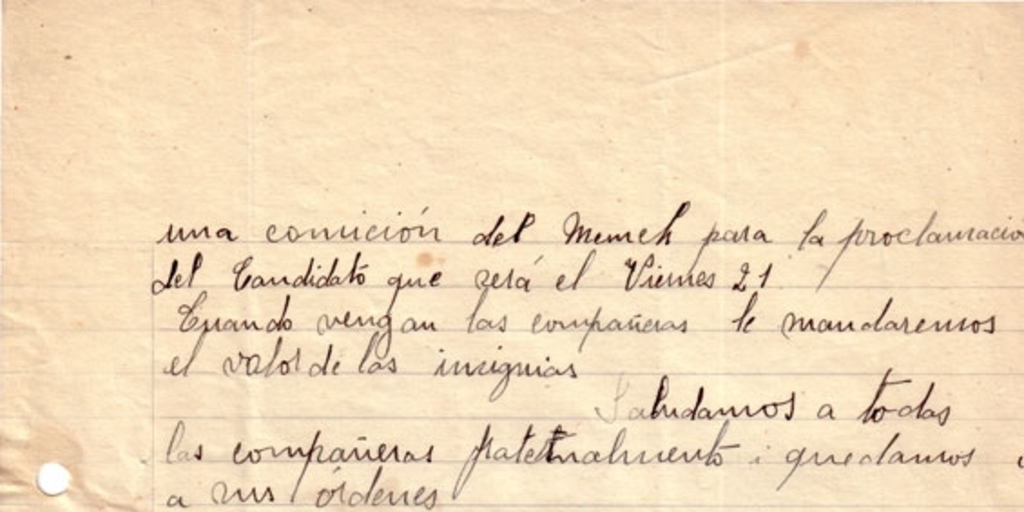 una comición del Memch para la proclamacio
del Candidato que será el Viernes 21.
Cuando vengan las compañeras le mandaremos
el valor de las insignias
Saludamos a todas
las compañeras fraternalmente i quedamos
a sus órdenes